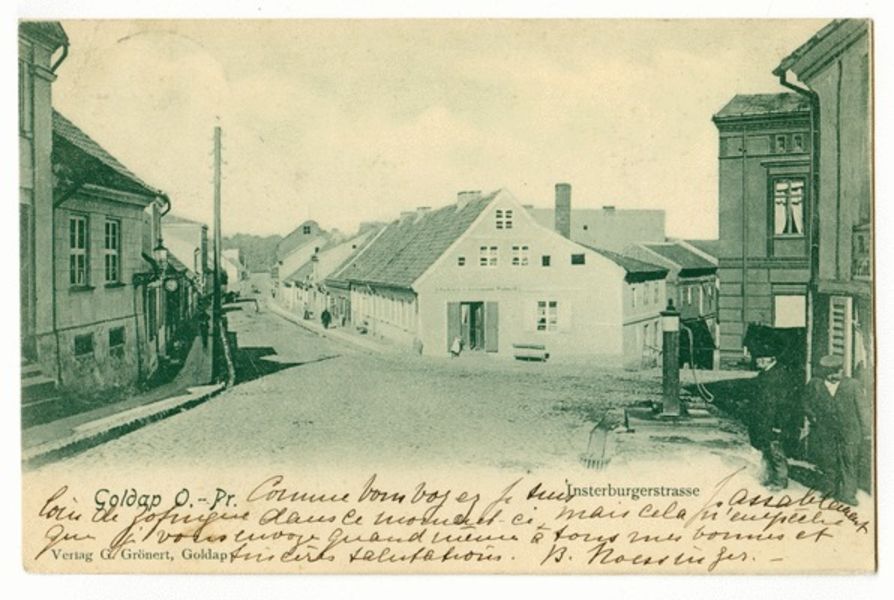 Goldap O.-Pr.
Insterburgerstrasse
Comme vous voyez je suis passablement
loin de Zofingue dans ce moment-ci, mais cela n'empêche
que je vous envoye quand même à tous mes bonnes et
sincères salutations. B.
Verlag G. Grönert, Goldap